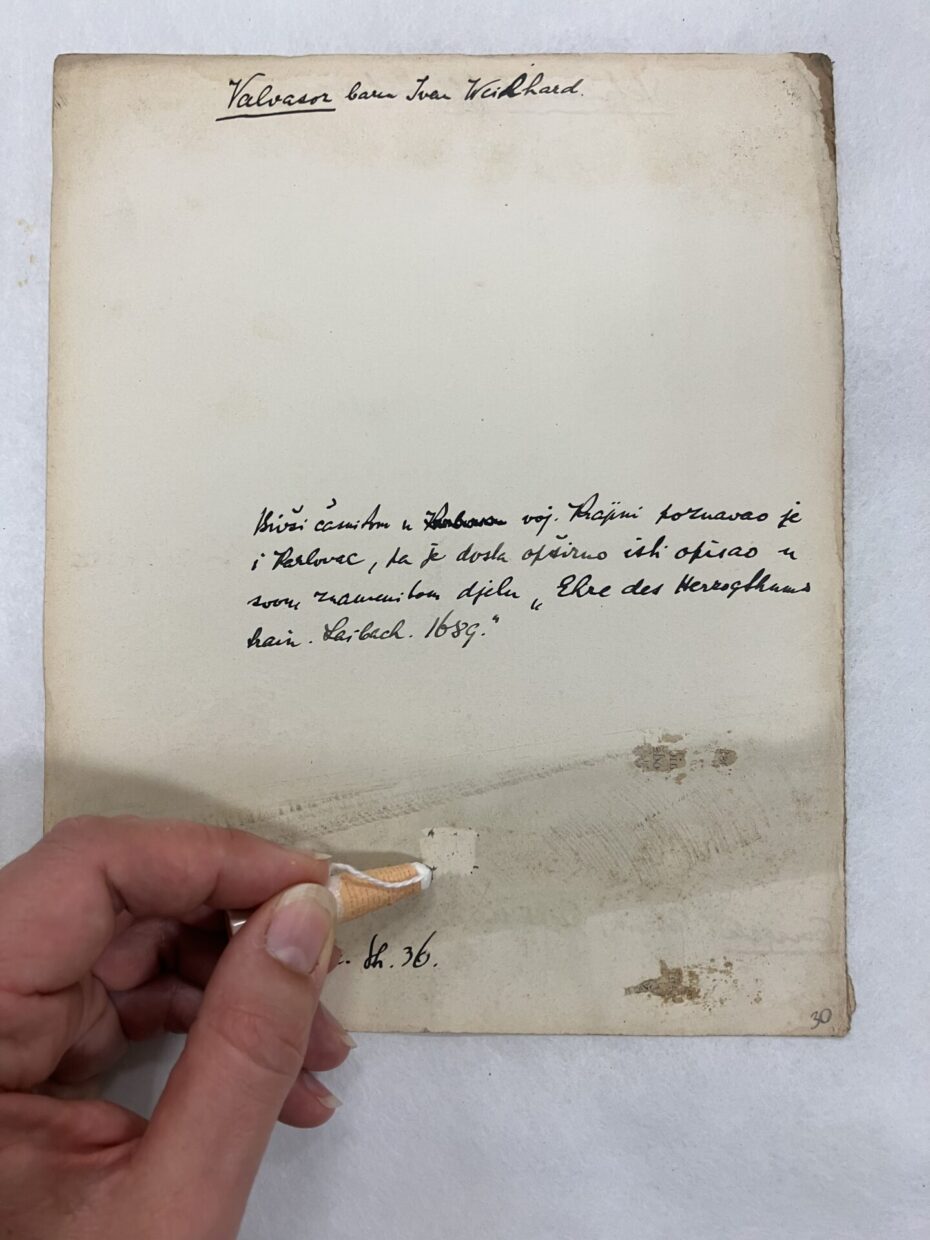 Valvasor barun Ivan Weikhard.
Bivši časnikom u voj. Krajini poznavao je
i Karlovac, pa je dosta opširno isti opisao u
svom znamenitom djelu „Ehre des Herzogthums
Krain. Laibach. 1689."
Sh. 36.
30